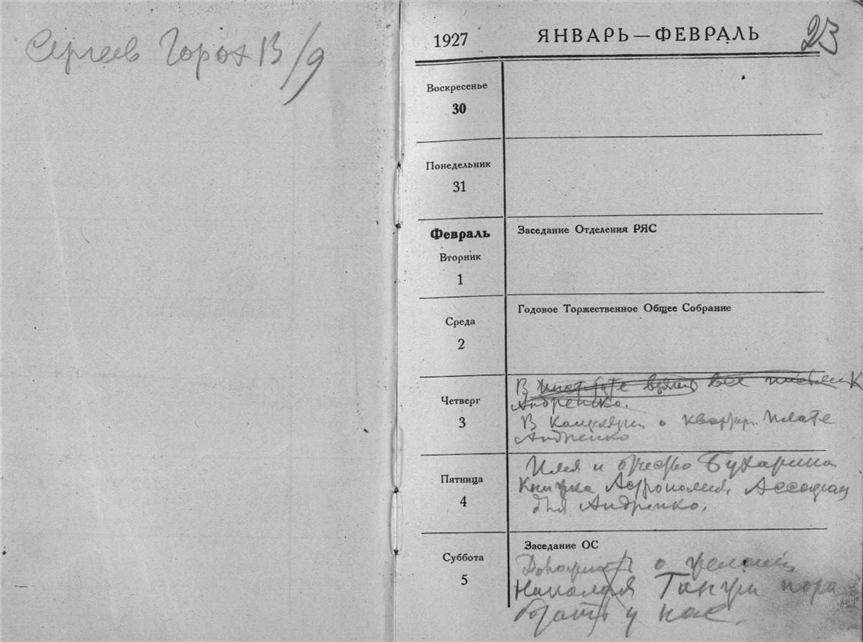 Сергеев Горох 13/9
1927
ЯНВАРЬ — ФЕВРАЛЬ
23
Воскресенье
30
Понедельник
31
Февраль
Вторник
1
Заседание Отделения РЯС
Среда
2
Годовое Торжественное Общее Собрание
Четверг
3
В взято все
Андреенко.
В Канцелярии о квартирн. плате
Андреенко
Пятница
4
Имя и отчество Бухарина
Книжка Астрономич. Ассоциац
для Андреенко.
Суббота
5
Заседание ОС
о желании
Николая пора
ботать у нас.